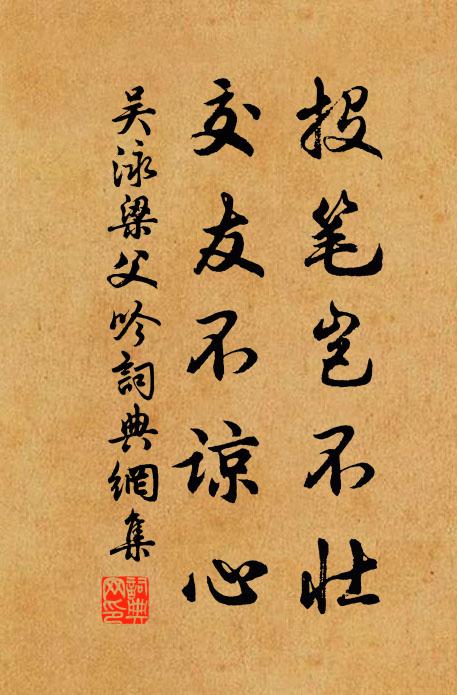 投笔岂不壮
交友不谅心
吴泳梁父吟詞典網集
詞典網印